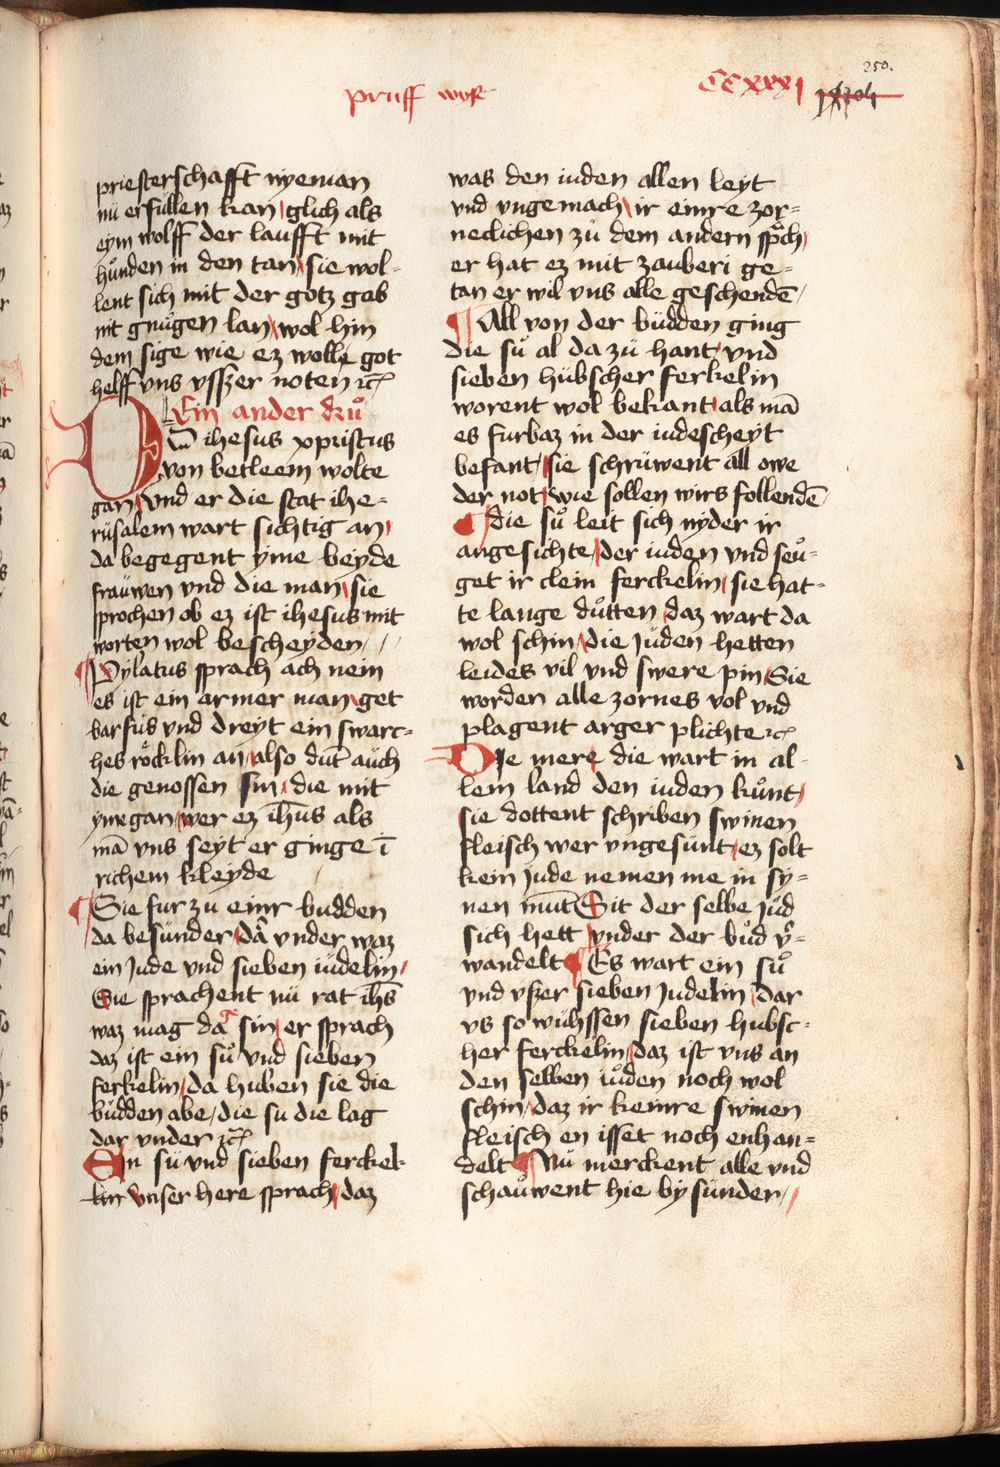 250.
pruff wys
CCxxxj
priesterschafft nyeman
nü erfüllen kan glich als
eym wolff der laufft mit
hůnden in den tan sie wol-
lent sich mit der gotz gab
nit gnůgen lan wol hin
dem sige wie ez wolle got
helff vns vsszer noten ⁊c̄
Ein ander drů
Do ihesus xpristus
von betleem wolte
gan vnd er die stat ihe-
rüsalem wart sichtig an
da begegent yme beyde
fraüwen vnd die man sie
sprochen ob ez ist ihesus mit
worten wol bescheyden
Pylatus sprach ach nein
es ist ein armer man get
barfüs vnd dreyt ein swarc-
hes röcklin an also důt aüch
die genossen sin die mit
yme gan wer ez ihūs als
mā vns seyt er ginge ī
richem kleyde
Sie fur zu einr budden
da besünder da vnder waz
ein Jude vnd sieben iüdelin
Sie sprachent nü rat ihūs
waz mag da sin er sprach
daz ist ein sů vnd sieben
ferkelin da huben sie die
büdden abe die su die lag
dar vnder ⁊c̄
Ein sü vnd sieben ferckel-
lin vnser here sprach daz
was den iuden allen leyt
vnd vngemach ir einre zor-
neclichen zů dem andern sp̄ch
er hat ez mit zauberi ge-
tan er wil vns alle geschendē
All von der büdden ging
die sů al da zü hant vnd
sieben hübscher ferkelin
worent wol bekant als mā
es furbaz in der iudescheyt
befant sie schrüwent all owe
der not wie sollen wirs follendē
die sů leit sich nyder ir
angesichte der iuden vnd seů-
get ir clein ferckelin sie hat-
te lange důtten daz wart da
wol schin die Jüden hetten
leides vil vnd swere pin Sie
worden alle zornes vol vnd
plagent arger plichte ⁊c̄
Die mere die wart in al-
lem land den iuden kůnt
sie dottent schriben swinen
fleisch wer vngesünt ez solt
kein Jude nemen me in sy-
nen mut Sit der selbe Jůd
sich hett vnder der bůd v̓-
wandelt Es wart ein sů
vnd vszer sieben Judelin dar
vs so wühssen sieben hubsc-
her ferckelin daz ist vns an
den selben iůden noch wol
schin daz ir keinre swinen
fleisch en isset noch enhan-
delt Nü merckent alle vnd
schaůwent hie by sünder